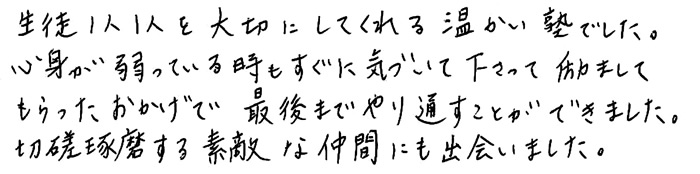 生徒1人1人を大切にしてくれる温かい塾でした。
心身が弱っている時もすぐに気づいて下さって励まして
もらったおかげで最後までやり通すことができました。
切磋琢磨する素敵な仲間にも出会いました。